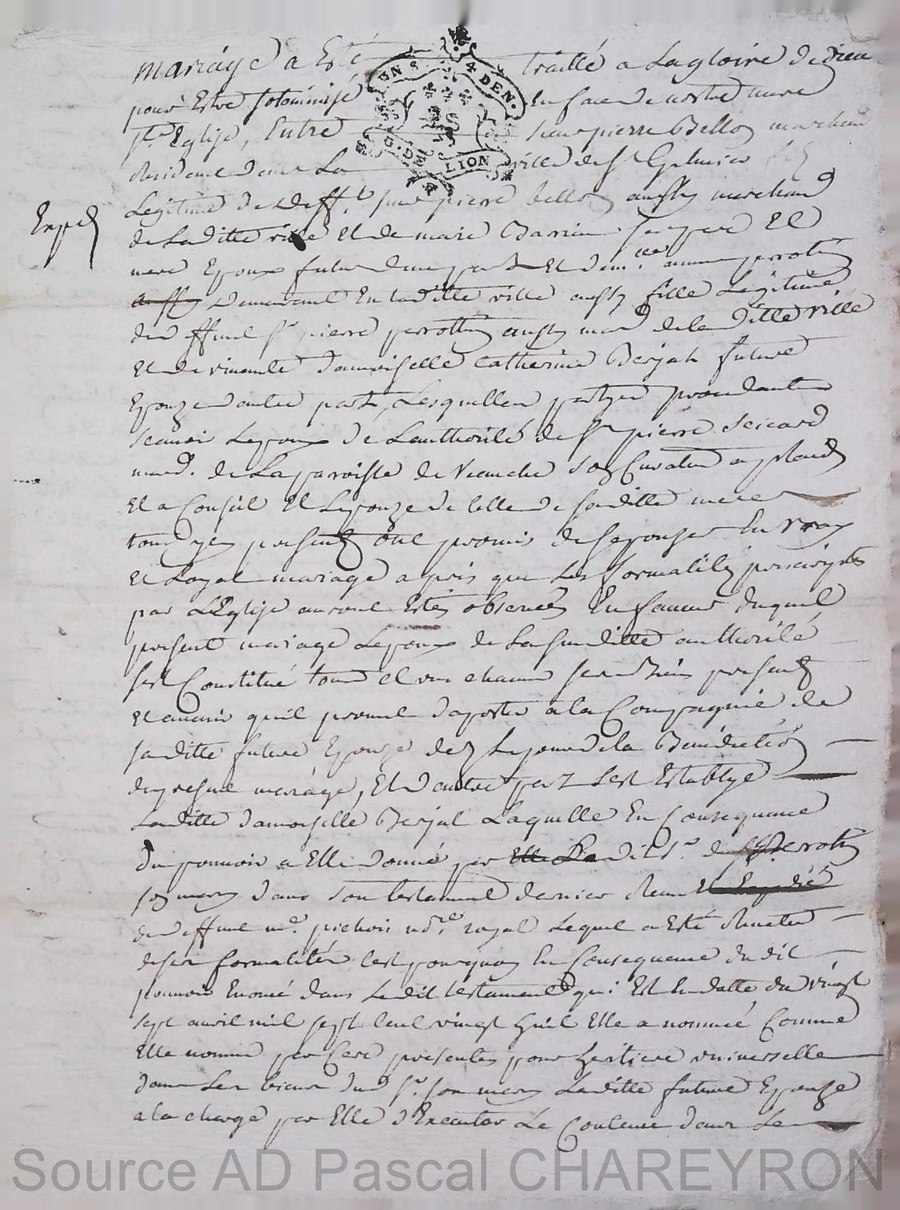 mariage a Esté traitté a La gloire de dieu
pour Estre solominisé En face de nostre mere
Ste Eglise, Entre sieur pierre Bellon marchand
Resident dans La ville de St Galmier fils
Legitime de defft sieur pierre bellon aussy marchand
de Laditte ville Et de marie Ses pere Et
Expéd
mere Epoux futur dune part Et dem.lle anne perrotin
demeurant En laditte ville aussy fille Legitime
de deffunt Sr pierre perrotin aussy mard de laditte ville
Et de vivante damoiselle Catherine Berjat future
Epouze dautre part, Lesquelles partyes procedantes
scavoir Lepoux de Lauthorité de Sr pierre Seicard
mard. de La paroisse de Veauche Son Curateur a plaids
Et a Conseil Et Lepouze de Celle de saditte mere
tous ycy presents ont promis de sepouser En vray
Et Loyal mariage apres que Les formalités prescriptes
par LEglise auront Estés observées En faveur duquel
present mariage Lepoux de La susditte authorité
sest Constitué tous Et un chacun ses Biens presents
Et avenir quil promet daporter a la Compagnie de
saditte future Epouze des Le jour de la Benediction
du present mariage, Et dautre part sest Establye
Laditte damoiselle Berjat Laquelle En Consequence
Du pouvoir a Elle donné par Ledit Sr Perrotin
son mary dans son testament dernier Receu
de deffunt me. pichon nore. royal Lequel a Esté Revetu
de ses formalités Cest pourquoy En Consequence dudit
pouvoir Enoncé dans Ledit testament qui Est En datte du vingt
sept avril mil sept Cent vingt huit Elle a nommée Comme
Elle nomme par Ces presentes pour heritiere universelle
dans Les biens dud Sr. son mary Laditte future Epouze
a la charge par Elle d'Executer Le Contenu dans Le
UN S. 4 DEN.
G. DE LION
4
Source AD Pascal CHAREYRON